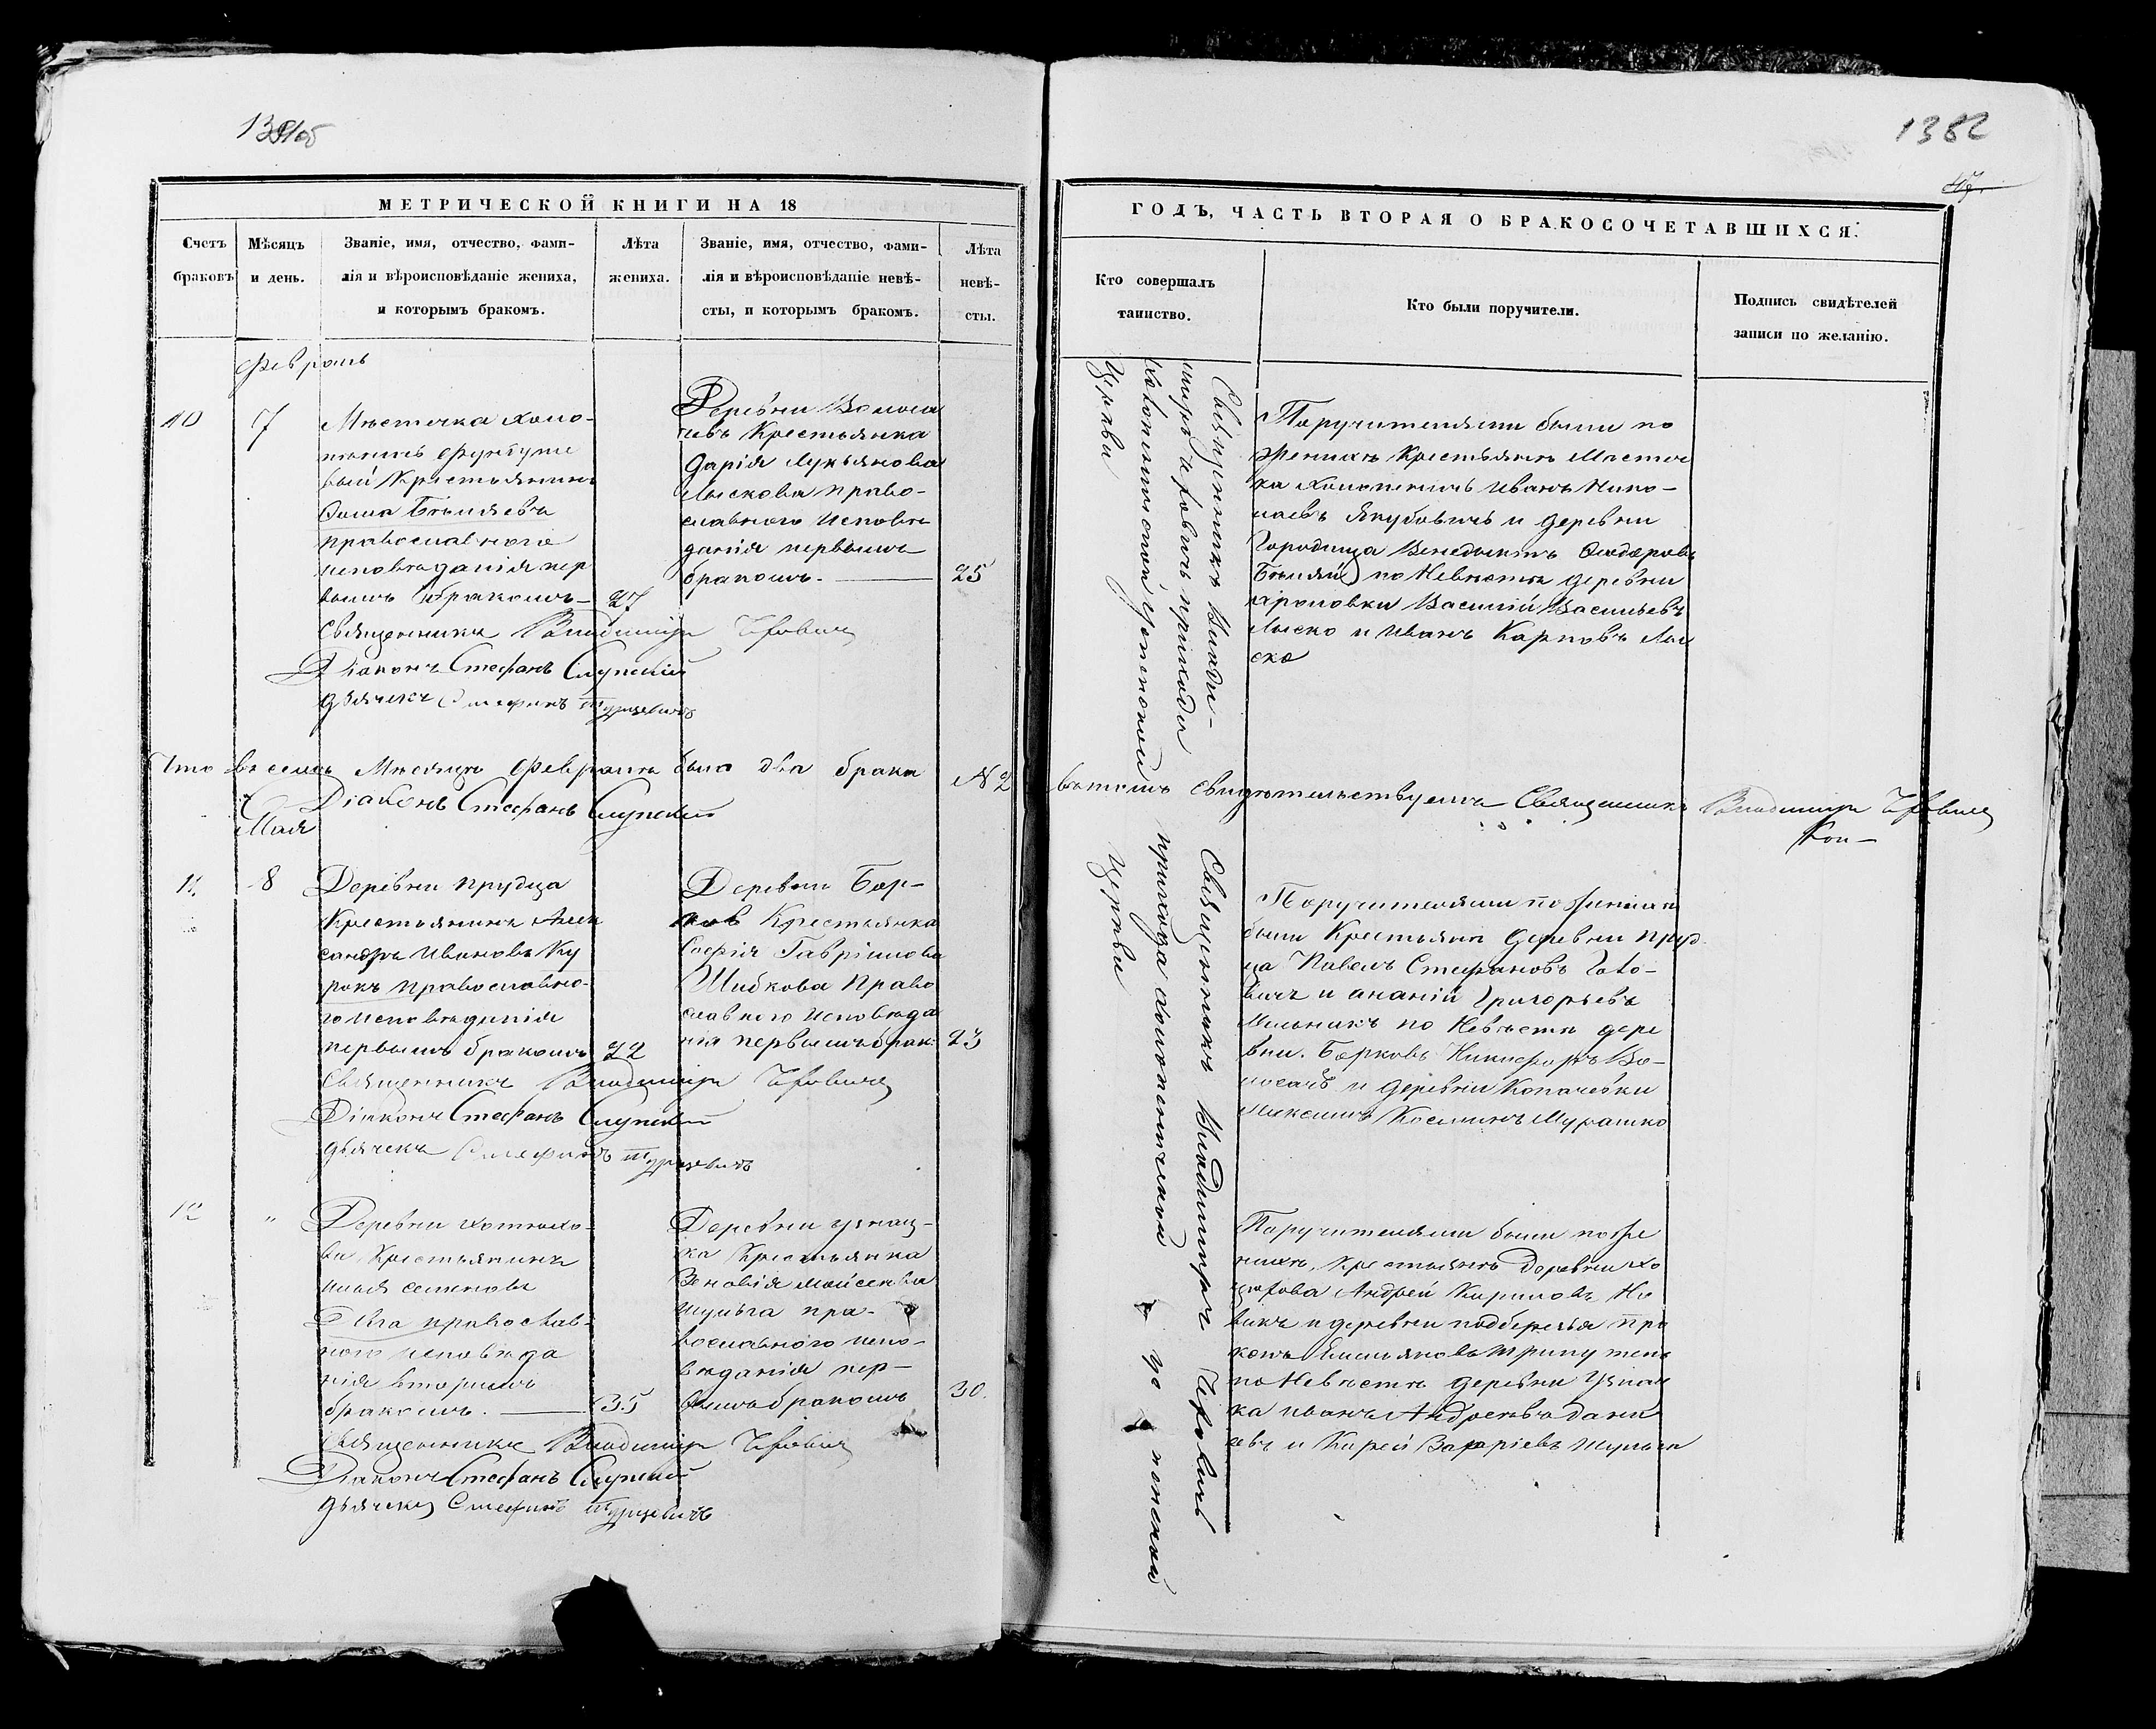 1381об
МЕТРИЧЕСКОЙ КНИГИ НА 18
Счетъ браковъ
Мѣсяцъ и день.
Званіе, имя, отчество, фами-
лія и вѣроисповѣданіе жениха,
и которымъ бракомъ.
Лѣта
жениха.
Званіе, имя, отчество, фами-
лія и вѣроисповѣданіе невѣ-
сты, и которымъ бракомъ.
Лѣта
невѣ-
сты.
Февраль
10
7
Мѣстечка Холо-
пеничь
Крестьянинъ
Фома Бѣляевъ
православнаго
исповѣданія пер
вымъ бракомъ
27
Деревни
Крестьянка
Дарія Лукьянова
Лыскова право-
славнаго исповѣ
данія первымъ
бракомъ.
25
Священникъ Владимиръ
Діаконъ Стефанъ Слупскій
дьячекъ Стефанъ
Что въ семъ Мѣсяцѣ Февралѣ было два брака № 2
Діаконъ Стефанъ Слупскій
Мая
11.
8
Деревни Прудца
Крестьянинъ Алек
сандръ Ивановъ Ку
рокъ православна-
го исповѣданія
первымъ бракомъ
22
Деревни Бор-
ковъ Крестьянка
Софія Гавріилова
Шибкова Право
славнаго исповѣда
нія первымъ брак.
23
Священникъ Владимиръ
Діаконъ Стефанъ Слупскій
дьячекъ Стефанъ
12
"
Деревни
Крестьянинъ
Илья Семеновъ
православ-
наго исповѣда
нія вторымъ
бракомъ.
35
Деревни
ка Крестьянка
Зеновія Мойсеева
Шульга пра-
вославнаго испо-
вѣданія пер-
вымъ бракомъ
30.
Священникъ Владимиръ
Діаконъ Стефанъ Слупскій
дьячекъ Стефанъ
1382
ГОДЪ, ЧАСТЬ ВТОРАЯ О БРАКОСОЧЕТАВШИХСЯ.
Кто совершалъ
таинство.
Кто были поручители.
Подпись свидѣтелей
записи по желанію.
Священникъ Влади-
миръ прихода
Холопеничской Успенской
Церкви
Поручителями были по
Женихѣ Крестьяне Мѣстеч
ка Холопеничь Иванъ Нико-
лаевъ Якубовичь и деревни
Городища Венедыктъ Феодоровъ
Бѣляй по Невѣстѣ деревни
Василій Васильевъ
Лыско и Иванъ Карповъ Лы
ско
въ томъ свидѣтельствуемъ Священникъ Владимиръ
Священникъ Владимиръ
прихода Холопеничской Успенской
Церкви
Поручителями по Женихѣ
были Крестьяне деревни Пруд
ца Павелъ Стефановъ Гото-
вичь и Ананій Григорьевъ
Мельникъ по Невѣстѣ дере
вни Борковъ Никифоръ Во-
лосачъ и деревни Копачевки
Максимъ Косминъ Мурашко
Поручителями были по Же
нихѣ, Крестьяне Деревни Хо
Андрей Кириловъ Но
викъ и деревни Подбережья Про
копъ Емельяновъ
по Невѣстѣ деревни
ка Иванъ Андреевъ
и Кирей Шульга